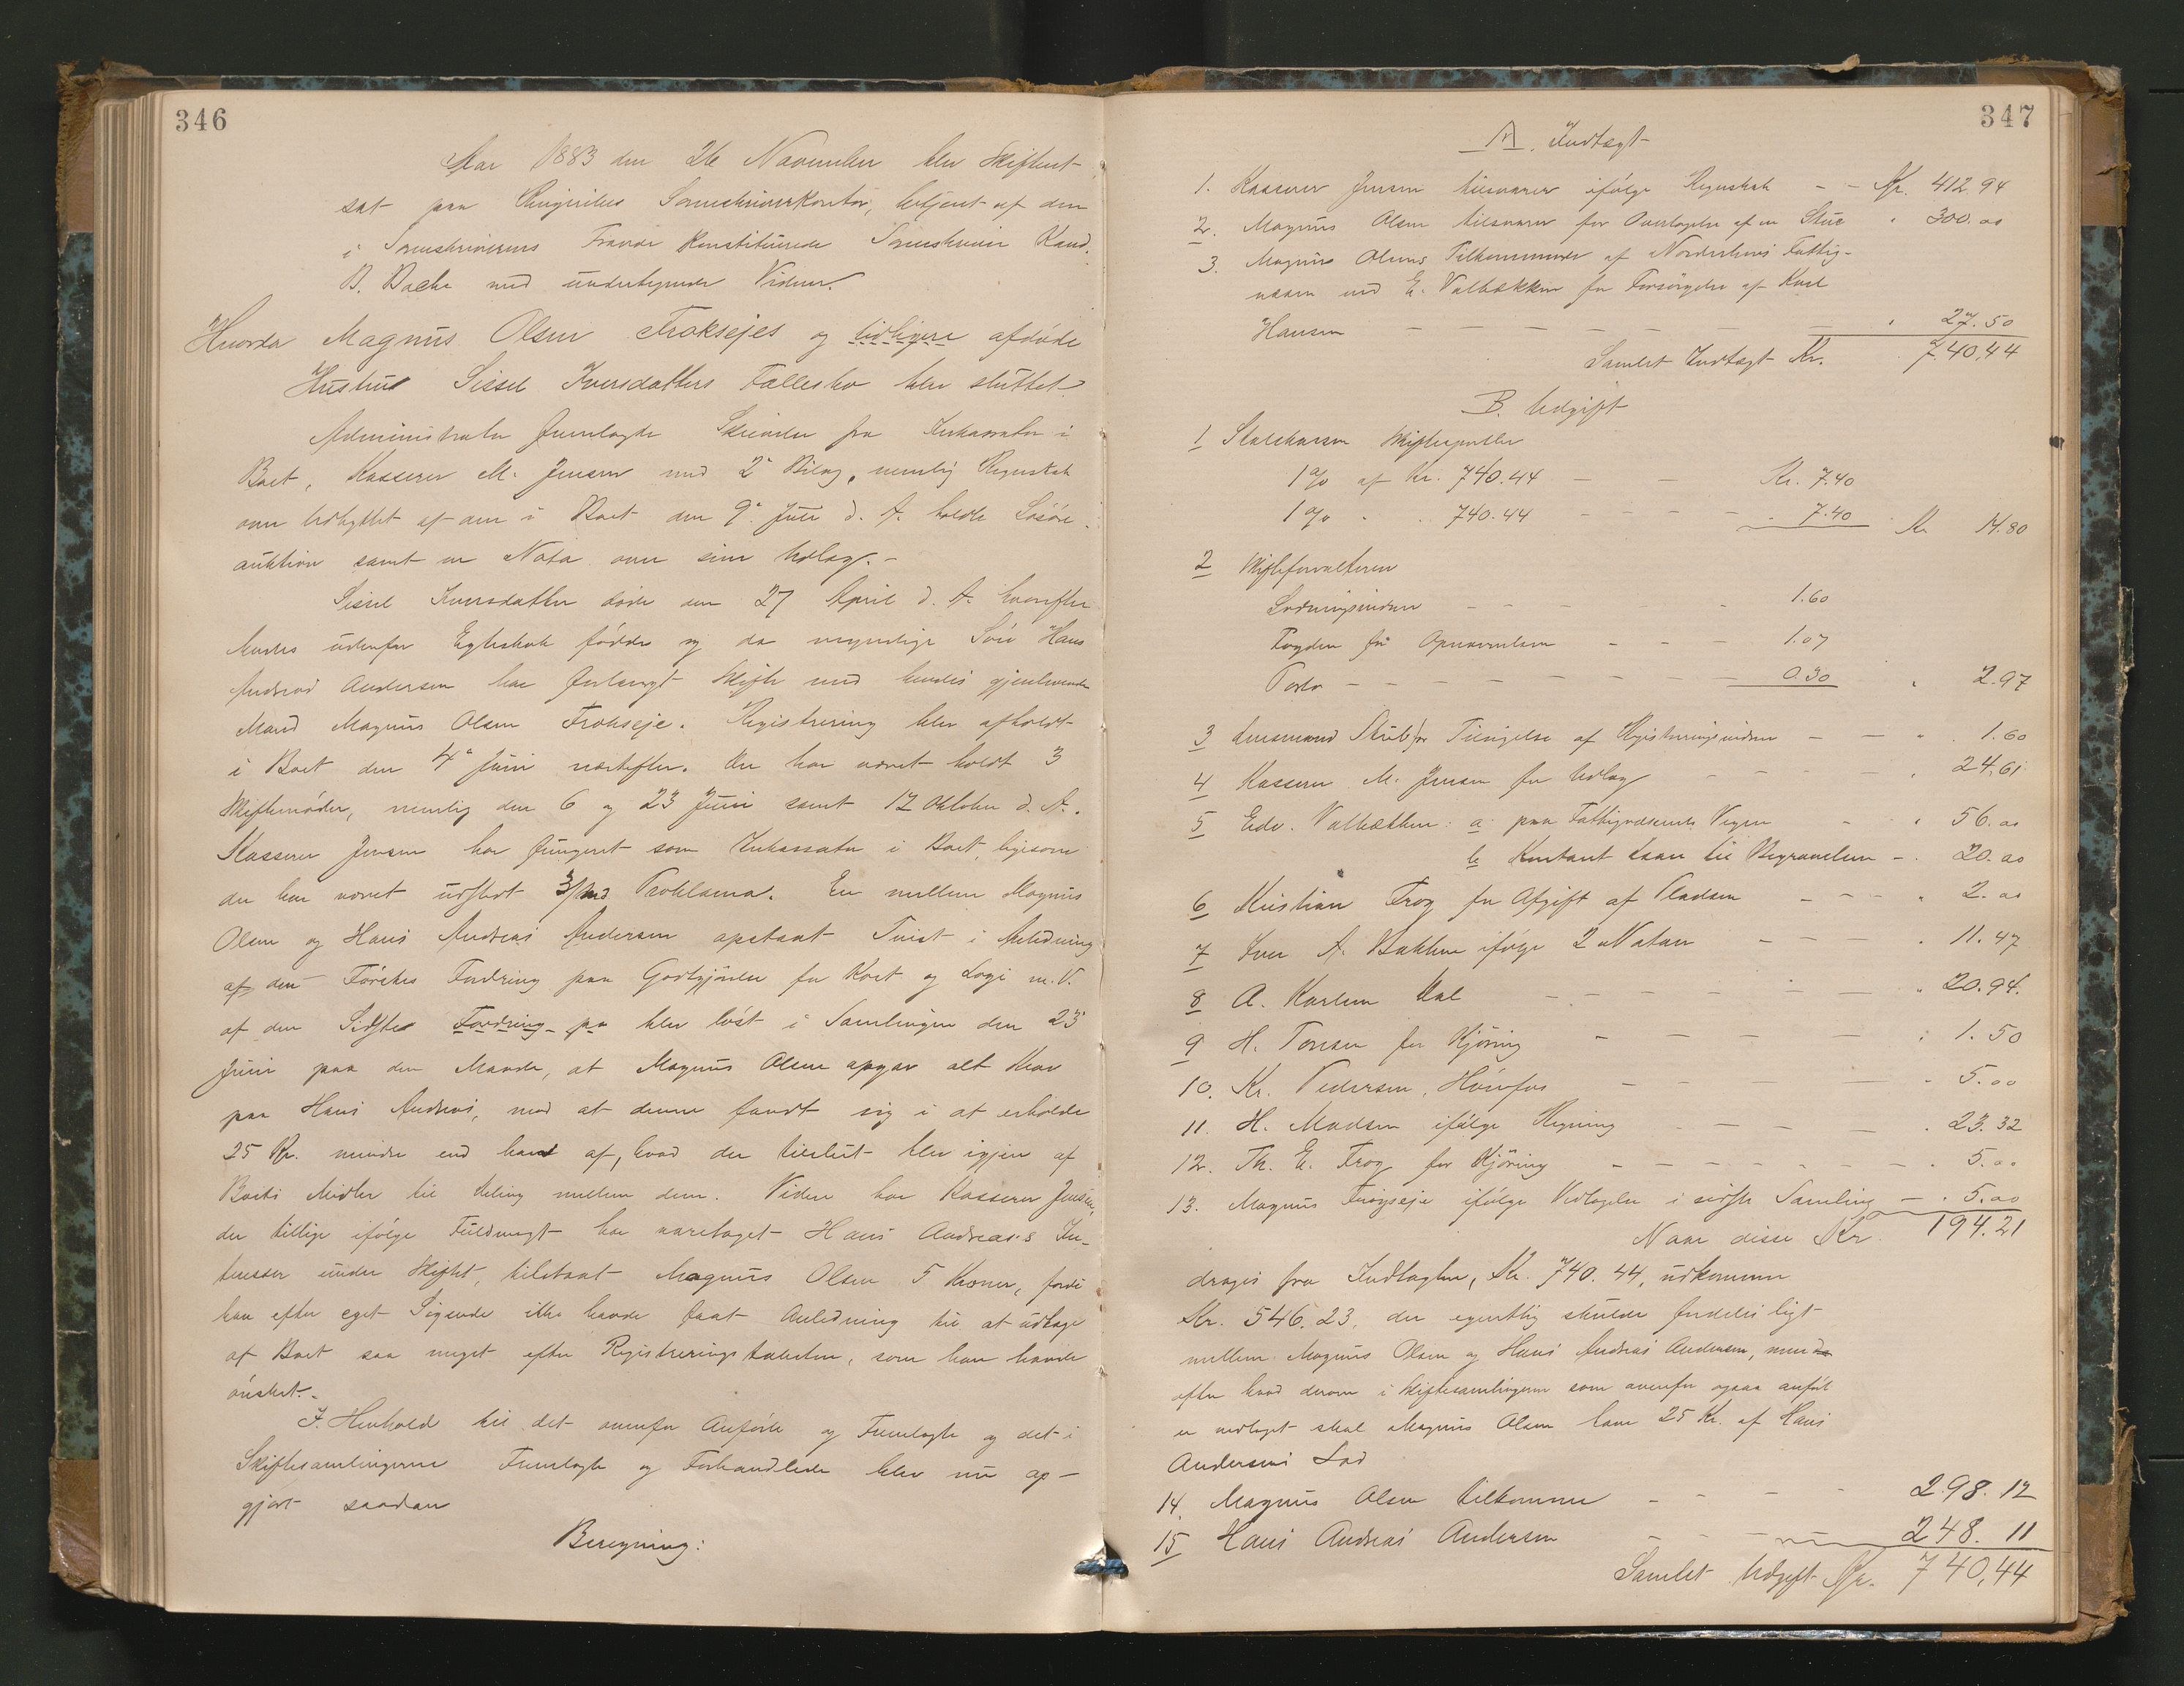 346
Aar 1883 den 26 November blev Skifteret-
sat paa Ringerikes Sorenskriverkontor, betjent af den
i Sorenskriverens Fravær konstituerede Sorenskriver Kand.
B. Bache med undertegnede Vidner.
Hvorda Magnus Olsen Frokseies og tidligere afdøde
Hustrus Sissel Iversdatters Fællesbo blev sluttet.
Administrator fremlagte Skrivelse fra Inkassator i
Boet, Kasserer M. Jensen med 2 Bilag, nemlig Regnskab
over Udbyttet af den i Boet den 9. Juli d. A. holdte Løsøre-
auktion samt en Nota over sine Udlæg. -
Sissel Iversdatter døde den 27 April d. A. hvorefter
hendes udenfor Egteskab fødte og da myndige Søn Hans
Andreas Andersen har forlangt Skifte med hendes gjenlevende
Mand Magnus Olsen Frokseie. Registrering blev afholdt
i Boet den 4 Juni næstefter. Der har været holdt 3
Skiftemøder, nemlig den 6 og 23 Juni samt 12 Oktober d. A.
Kasserer Jensen har fungeret som Inkassator i Boet, ligesom
der har været udstedt Proklama. En mellem Magnus
Olsen og Hans Andreas Andersen opstaat Tvist i Anledning
af den Førstes Fordring paa Godtgjørelse for Kost og Logi m. V.
af den Sidste Fordring paa blev løst i Samlingen den 23
Juni paa den Maade, at Magnus Olsen opgav alt Krav
paa Hans Andreas, mod at denne fandt sig i at erholde
25 Kr. mindre end han af, hvad der tilslut blev igjen af
Boets Midler til Deling mellem dem. Videre har Kasserer Jensen,
der tillige ifølge Fuldmagt har varetaget Hans Andreas's In-
teresser under Skiftet, tilstaat Magnus Olsen 5 Kroner, fordi
han efter eget Sigende ikke havde faat Anledning til at udtage
af Boet saa meget efter Registreringstaksten, som han havde
ønsket. -
I Henhold til det ovenfor Anførte og Fremlagte og det i
Skiftesamlingerne Fremlagte og Forhandlede blev nu op-
gjort saadan
Beregning:
347
A. Indtægt
1. Kasserer Jensen tilsvarer ifølge Regnskab - - Kr. 412.94
2. Magnus Olsen tilsvarer for Overtagelse af en Stue " 300.00
3. Magnus Olsens Tilkommende af Norderhovs Fattig-
væsen ved E. Valbækken for Forsørgelse af Karl
Hansen - - - - - - " 27.50
Samlet Indtægt Kr. 740,44
B. Udgift
1 Statskassen Skiftesportler
1 % af Kr. 740.44 - - Kr. 7.40
1 % " " 740.44 - - - - " 7.40 Kr. 14.80
2 Skifteforvalteren
Lodningsindm - - - - - 1.60
Fogden for Opnævnelsen - - - 1.07
Porto - - - - - - - - 0.30 " 2.97
3 Lensmand for Tinglysning af - - " 1.60
4 Kasserer M. Jensen for Udlæg - - - - - " 24.61
5 Edv. Valbækken: a paa Fattigvæsenets Vegne - " 56.00
b Kontant Laan til Begravelsen - " 20.00
6 Kristian Frog for Afgift af Pladsen - - - " 2.00
7 Iver A. Bakken ifølge 2 Notaer - - - " 11.47
8 A. Karlsen - - - - - " 20.94.
9 H. Tonsen for Kjøring - - - - " 1.50
10. Kr. Pedersen, Hønefos - - - - " 5.00
11. H. Madsen ifølge Regning - - - - " 23.32
12. Th. E. Frog for Kjøring - - - - - - - " 5.00
13. Magnus Frogseie ifølge Vedtagelse i sidste Samling - " 5.00
Naar disse Kr. 194.21
drages fra Indtægten, Kr. 740.44, udkommer
Kr. 546.23, der egentlig skulde fordeles ligt
mellem Magnus Olsen og Hans Andreas Andersen, men
efter hvad derom i Skiftesamlingerne som ovenfor ogsaa anført
er vedtaget skal Magnus Olsen have 25 Kr. af Hans
Andersens Lod
14. Magnus Olsen tilkommer - - - - 298.12
15 Hans Andreas Andersen - - - - 248.11
Samlet Udgift Kr. 740,44